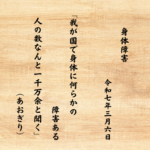 身体障害
令和七年三月六日
「我が国で身体に何らかの
障害ある
人の数なんと一千万余と聞く」
（あおぎり）